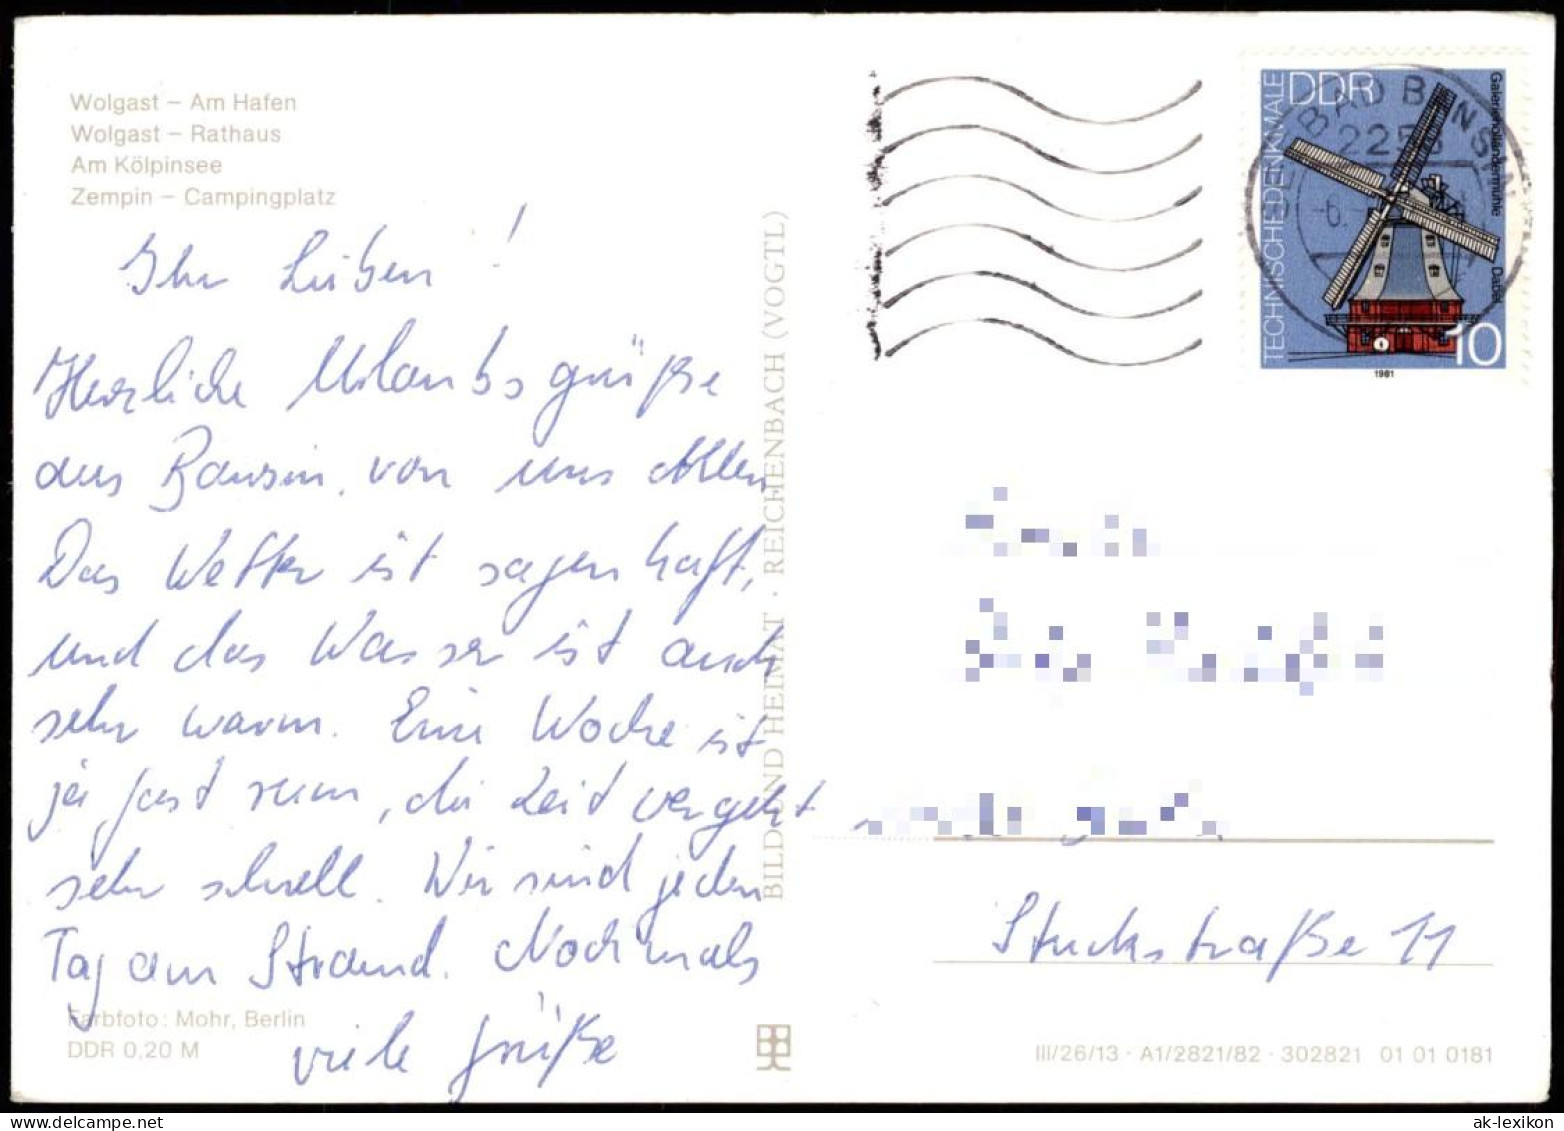 Wolgast – Am Hafen
Wolgast – Rathaus
Am Kölpinsee
Zempin – Campingplatz
Ihr Lieben!
Herzliche Urlaubsgrüße
aus Bansin von uns Allen
Das Wetter ist sagenhaft,
und das Wasser ist auch
sehr warm. Eine Woche ist
ja fast rum, die Zeit vergeht
sehr schnell. Wir sind jeden
Tag am Strand. Nochmals
viele Grüße
Farbfoto: Mohr, Berlin
DDR 0,20 M
BILD UND HEIMAT · REICHENBACH (VOGTL)
BAD BANSIN
2255
-6.
TECHNISCHE DENKMALE
DDR
Galerieholländermühle Dabel
10
1981
Stuckstraße 11
III/26/13 · A1/2821/82 · 302821 01 01 0181
ak-lexikon